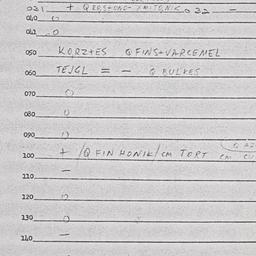 031 +
040 0
041 0
050 KORZTES QFINS+VARCEMEL
060 TEJGL = - Q BULKES
070 0
080 0
090 0
100 + /Q FIN HONIK/CM TORT CM
110 -
120 0
130 0
140 -